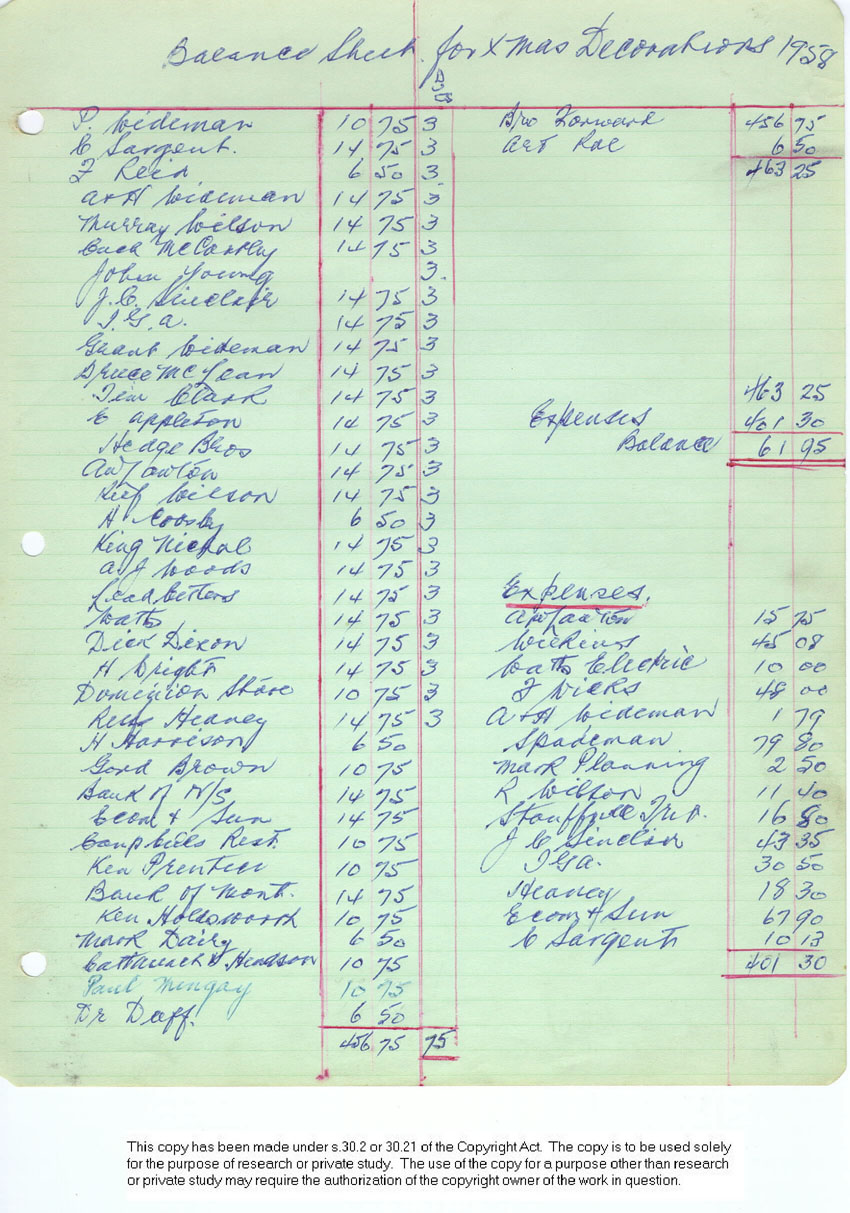 Balance Sheet for Xmas Decorations 1958
P. Wideman 10 75 3
C Sargent. 14 75 3
F Reid 6 50 3
A+H Wideman 14 75 3
Murray Wilson 14 75 3
Buck McCarthy 14 75 3
John Young 3
J.C. Sinclair 14 75 3
I.G.A. 14 75 3
Grant Wideman 14 75 3
Bruce McLean 14 75 3
Jim Clark 14 75 3
E Appleton 14 75 3
Hedge Bros 14 75 3
14 75 3
Wilson 14 75 3
H Cooby 6 50 3
King Nichol 14 75 3
A.J Woods 14 75 3
Leadbetters 14 75 3
Watts 14 75 3
Dick Dixon 14 75 3
H Wright 14 75 3
Dominion Store 10 75 3
Heaney 14 75 3
H Harrison 6 50
Gord Brown 10 75
Bank of N/S 14 75
Econ + Sun 14 75
Campbells Rest. 10 75
Ken Prentice 10 75
Bank of Mont. 14 75
Ken Holdsworth 10 75
Mark Dairy 6 50
Cattanach & Hindson 10 75
Paul Mingay 10 75
Dr Duff. 6 50
456 75 75
Bro Forward 456 75
Art Rae 6 50
463 25
463 25
Expenses 401 30
Balance 61 95
Expenses.
15 75
Wilkins 45 08
Watts Electric 10 00
F Vicks 48 00
A+H Wideman 1 79
Spademan 79 80
Mark Planning 2 50
R Wilson 11 40
Stouffville Trib. 16 80
J C Sinclair 43 35
I G A. 30 50
Heaney 18 30
Econ + Sun 67 90
C Sargent 10 13
401 30
This copy has been made under s.30.2 or 30.21 of the Copyright Act. The copy is to be used solely
for the purpose of research or private study. The use of the copy for a purpose other than research
or private study may require the authorization of the copyright owner of the work in question.